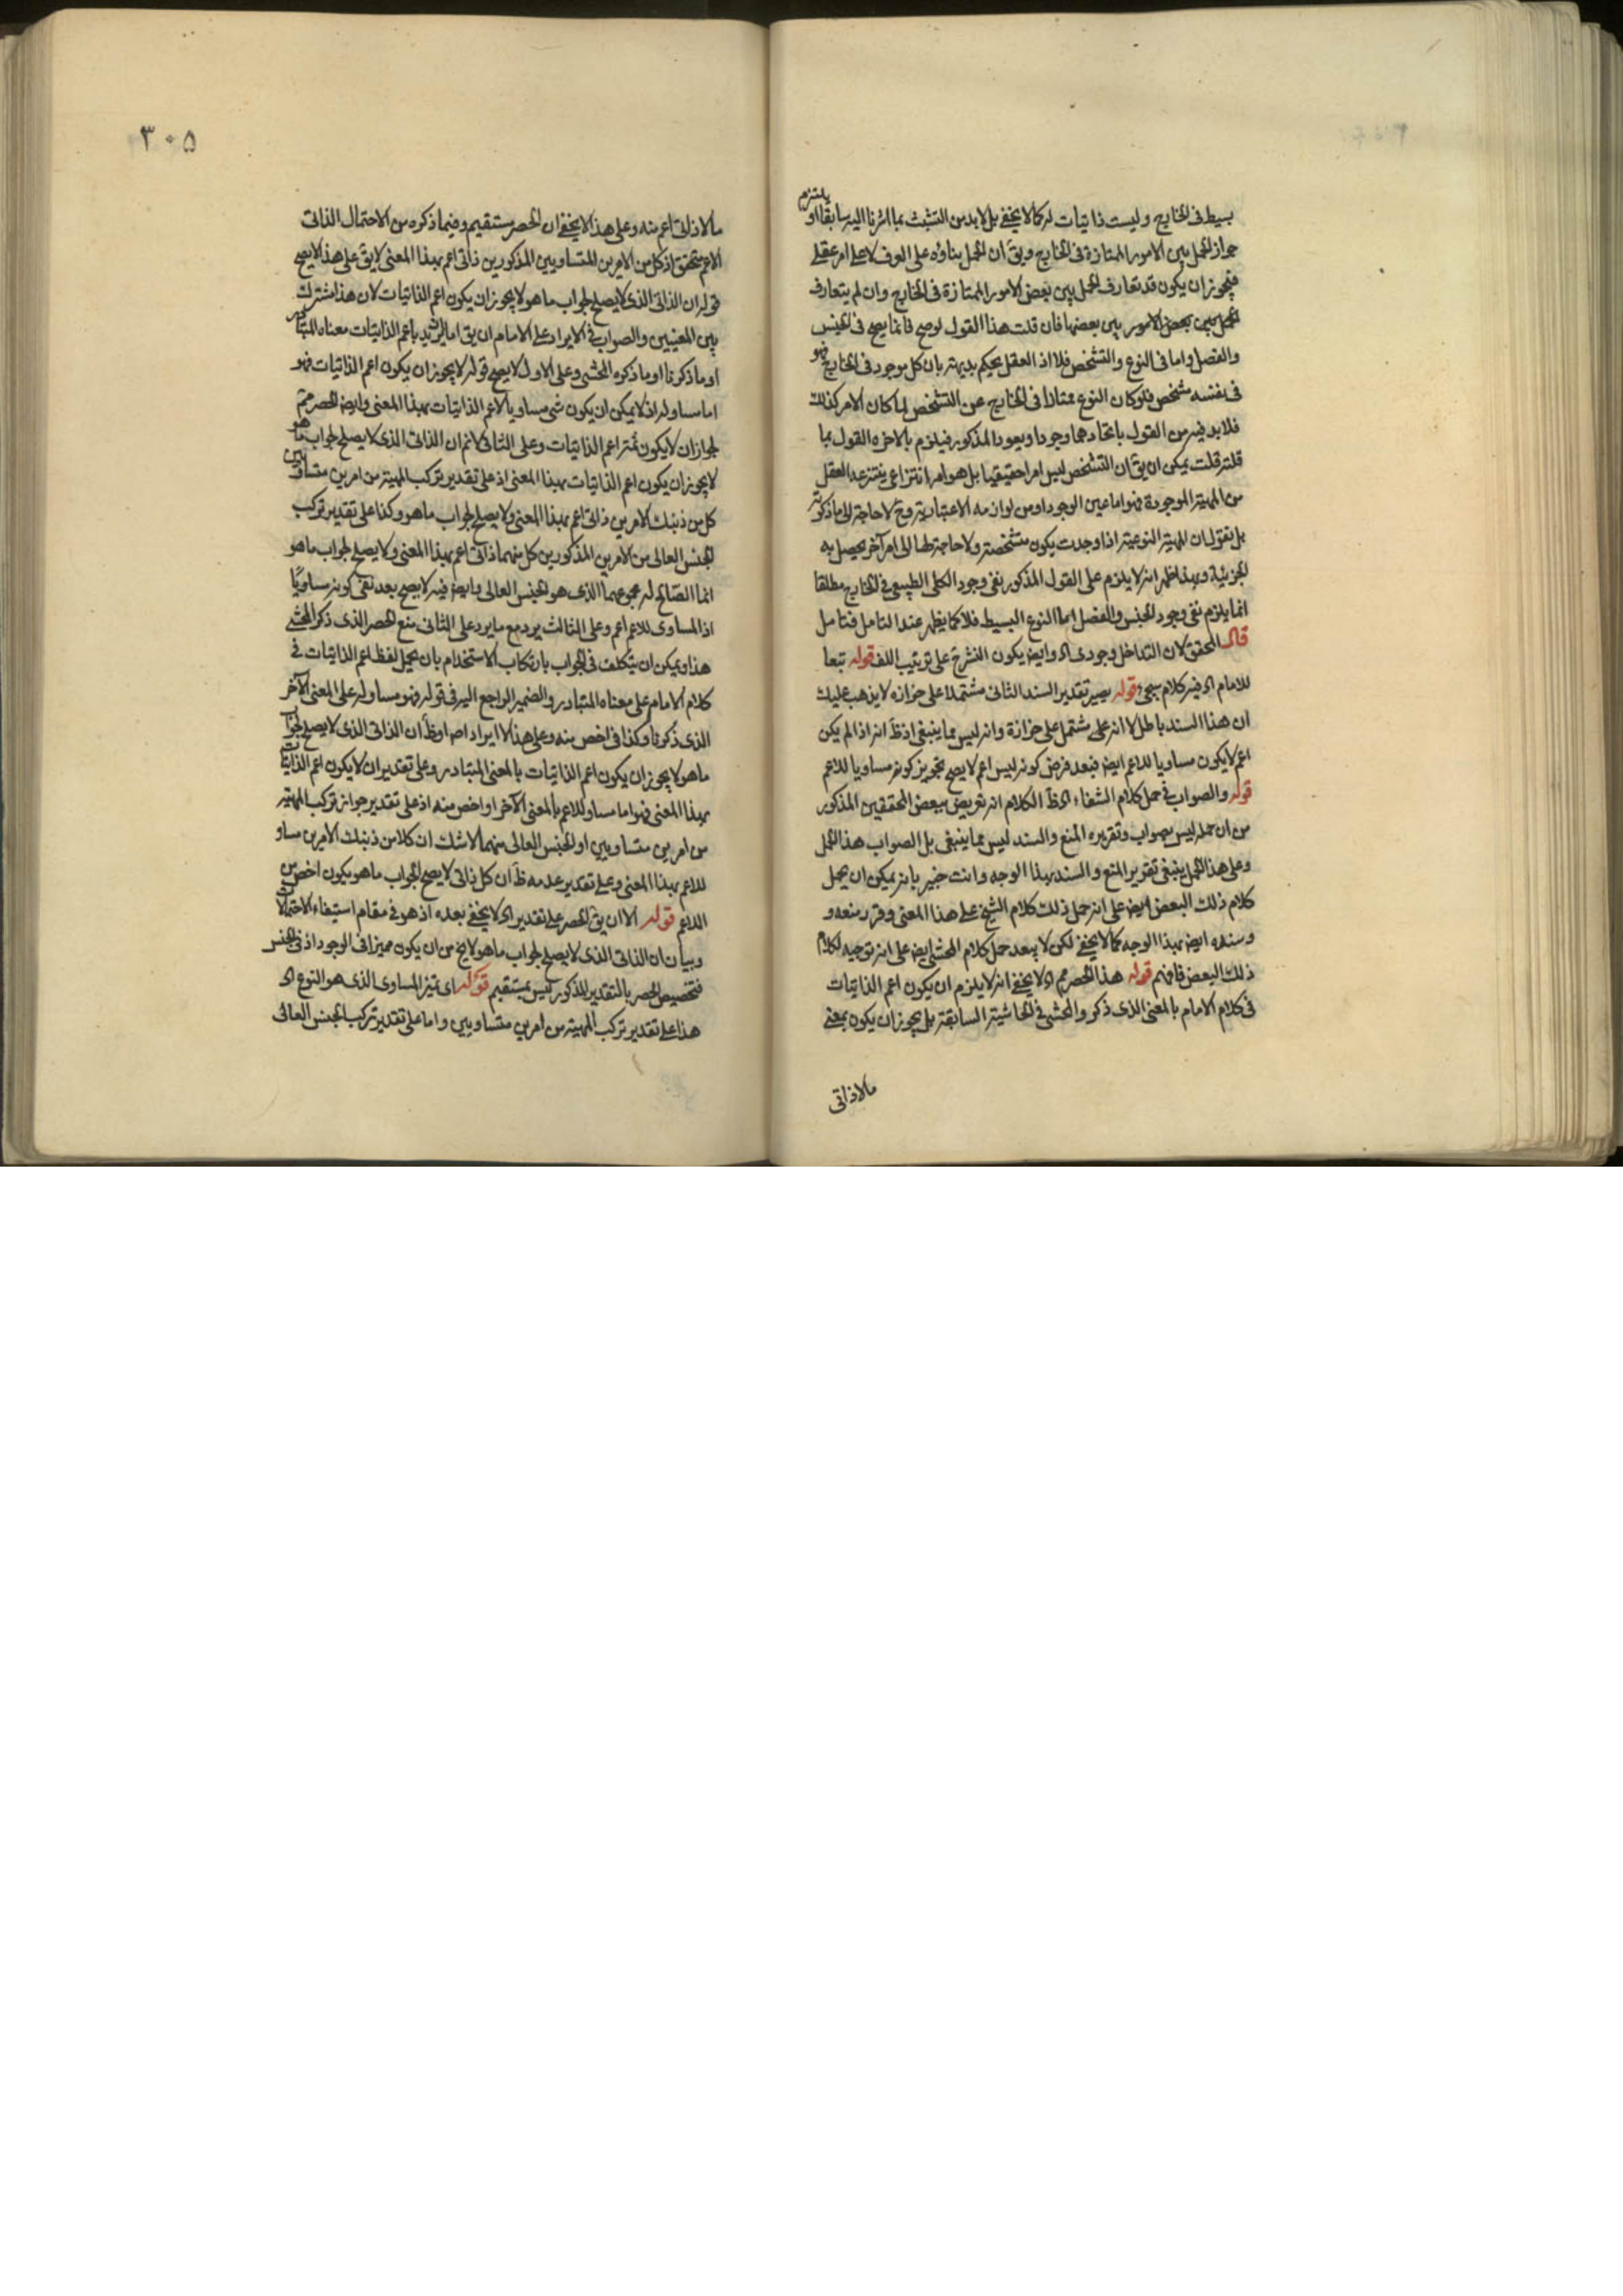 بسيط فى الخارج وليست ذاتيات له كما لا يخفى بل لا بد من التشبث بما اشرنا اليه سابقا او يلتزم
جواز الحمل بين الامور الممتازة فى الخارج ويق ان الحمل بناؤه على العرف لا على امر عقلى
فيجوز ان يكون قد تعارف الحمل بين بعض الامور الممتازة فى الخارج وان لم يتعارف
الحمل بين بعض الامور بين بعضها فان قلت هذا القول لو صح فانما يصح فى الجنس
والفصل واما فى النوع والتشخص فلا اذ العقل يحكم بديهة بان كل موجود فى الخارج فهو
فى نفسه مشخص فلو كان النوع ممتازا فى الخارج عن التشخص لما كان الامر كذلك
فلا بد فيه من القول باتحادهما وجودا ويعود المذكور فيلزم بالاخره القول بما
قلته قلت يمكن ان يق ان التشخص ليس امرا حقيقيا بل هو امر انتزاعى ينتزعه العقل
من المهية الموجودة فهو اما عين الوجود او من لوازمه الاعتبارية وح لا حاجة الى ما ذكرته
بل نقول ان المهية النوعية اذا وجدت يكون متشخصة ولا حاجة لها الى امر آخر يحصل به
الجزئية وبهذا ظهر انه لا يلزم على القول المذكور نفى وجود الكلى الطبيعى فى الخارج مطلقا
انما يلزم نفى وجود الجنس والفصل اما النوع البسيط فلا كما يظهر عند التامل فتامل
قال المحقق لان التداخل وجودى اه وايض يكون النشر ح على ترتيب اللف قوله تبعا
للامام اه فيه كلام سيجىء قوله يصير تقدير السند الثانى مشتملا على حزازه لا يذهب عليك
ان هذا السند باطل لا انه على مشتمل على حزازة وانه ليس مما ينبغى اذ ظ انه اذا لم يكن
اعم لا يكون مساويا للاعم ايض فبعد فرض كونه ليس اعم لا يصح تجويز كونه مساويا للاعم
قوله والصواب فى حمل كلام الشفاء اه ظ الكلام انه تعريض ببعض المحققين المذكور
من ان حمله ليس بصواب وتقريره المنع والسند ليس مما ينبغى بل الصواب هذا الحمل
وعلى هذا الحمل ينبغى تقرير المنع والسند بهذا الوجه وانت خبير بانه يمكن ان يحمل
كلام ذلك البعض ايض على انه حمل ذلك كلام الشيخ على هذا المعنى وقرر منعه و
وسنده ايض بهذا الوجه كما لا يخفى لكن لا يبعد حمل كلام المحشى ايض على انه توجيه لكلام
ذلك البعض فافهم قوله هذا الحصر مم اه لا يخفى انه لا يلزم ان يكون اعم الذاتيات
فى كلام الامام بالمعنى الذى ذكره المحشى فى الحاشية السابقة بل يجوز ان يكون بمعنى
ما لا ذاتى
٣٠٥
ما لا ذاتى اعم منه وعلى هذا لا يخفى ان الحصر مستقيم وفيما ذكره من الاحتمال الذاتى
الاعم متحقق اذ كل من الامرين المتساويين المذكورين ذاتى اعم بهذا المعنى لا يق على هذا لا يصح
قوله ان الذاتى الذى لا يصلح لجواب ما هو لا يجوز ان يكون اعم الذاتيات لان هذا مشترك
بين المعنيين والصواب فى الايراد على الامام ان يق اما ان يريد باعم الذاتيات معناه المتبادر
او ما ذكرنا او ما ذكره المحشى وعلى الاول لا يصح قوله لا يجوز ان يكون اعم الذاتيات فهو
اما مساو له اذ لا يمكن ان يكون شى مساويا لاعم الذاتيات بهذا المعنى وايض الحصر مم
لجواز ان لا يكون ثمة اعم الذاتيات وعلى الثانى لا نم ان الذاتى الذى لا يصلح لجواب ما هو
لا يجوز ان يكون اعم الذاتيات بهذا المعنى اذ على تقدير تركب المهية من امرين متساويين
كل من ذينك الامرين ذاتى اعم بهذا المعنى ولا يصلح لجواب ما هو وكذا على تقدير تركب
الجنس العالى من الامرين المذكورين كل منهما ذاتى اعم بهذا المعنى ولا يصلح لجواب ما هو
انما الصالح له مجموعهما الذى هو الجنس العالى وايض فيه لا يصح بعد نفى كونه مساويا
اذ المساوى للاعم اعم وعلى الثالث يرد مع ما يرد على الثانى منع الحصر الذى ذكر المحشى
هذا ويمكن ان يتكلف فى الجواب بارتكاب الاستخدام بان يحمل لفظ اعم الذاتيات فى
كلام الامام على معناه المتبادر والضمير الراجع اليه فى قوله فهو مساو له على المعنى الآخر
الذى ذكرنا وكذا فى اخص منه وعلى هذا لا ايراد اص او ظ ان الذاتى الذى لا يصلح لجواب
ما هو لا يجوز ان يكون اعم الذاتيات بالمعنى المتبادر وعلى تقدير ان لا يكون اعم الذاتيات
بهذا المعنى فهو اما مساو للاعم بالمعنى الآخر او اخص منه اذ على تقدير جواز تركب المهية
من امرين متساويين او الجنس العالى منهما لا شك ان كلا من ذينك الامرين مساو
للاعم بهذا المعنى وعلى تقدير عدمه ظ ان كل ذاتى لا يصح لجواب ما هو يكون اخص من
الاعم قوله الا ان يق الحصر على تقدير اه لا يخفى بعده اذ هو فى مقام استيفاء الاحتمالات
وبيان ان الذاتى الذى لا يصلح لجواب ما هو لا يخ من ان يكون مميزا فى الوجود اذ فى الجنس
فتخصيص الحصر بالتقدير المذكور ليس بمستقيم قوله اى تميز المساوى الذى هو النوع اه
هذا على تقدير تركب المهية من امرين متساويين واما على تقدير تركب الجنس العالى